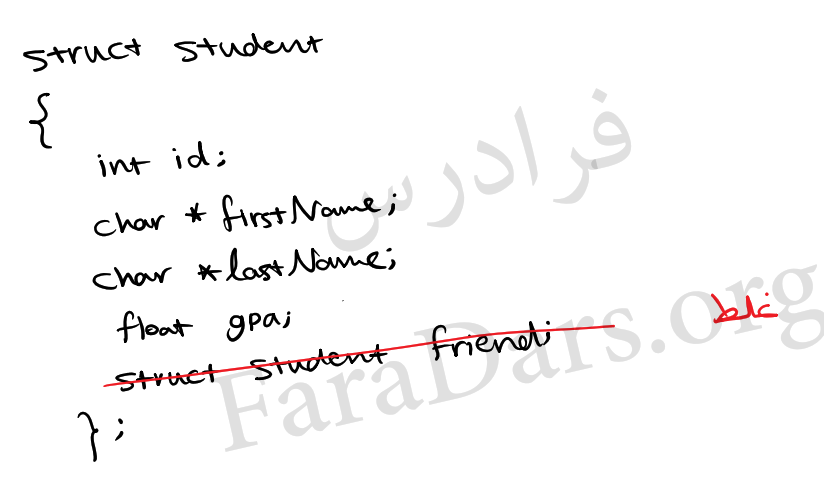 struct student
{
int id;
char * firstName;
char *lastName;
float gpa;
struct student friend;
غلط
};
فرادرس
FaraDars.org